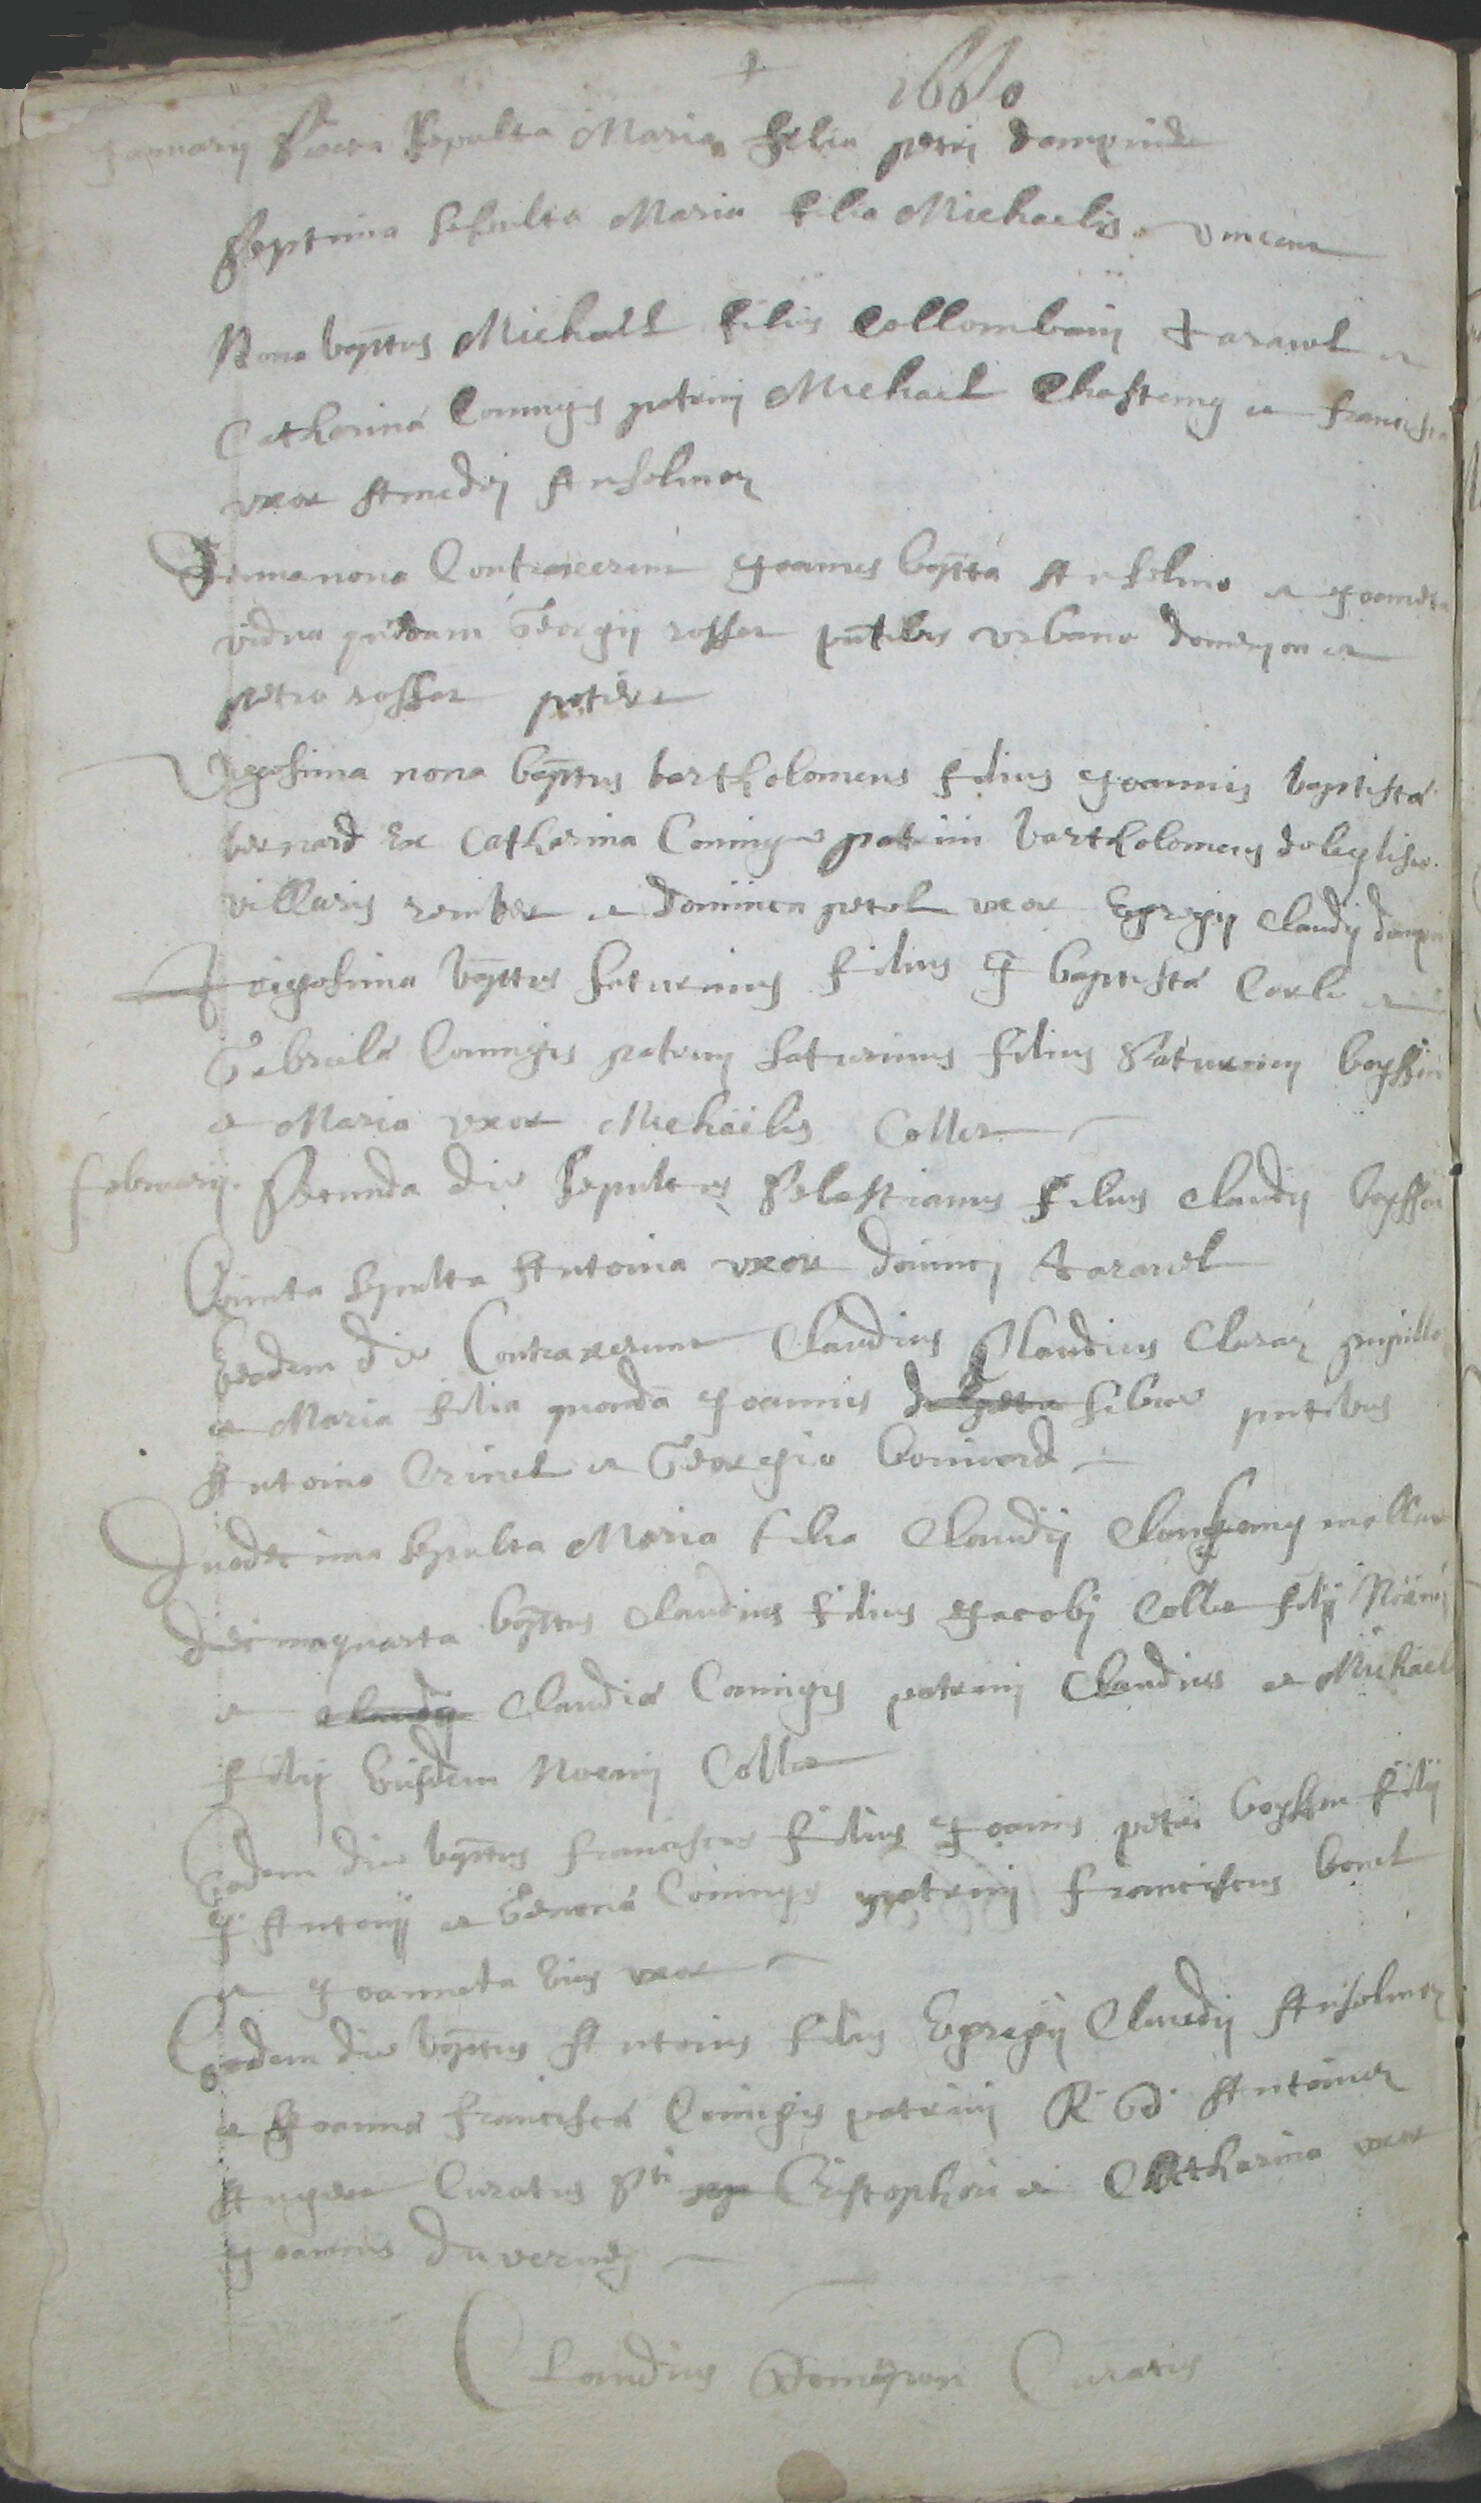 1660
January Sexta Sepulta Maria filia petri dampnide
Septima sepulta Maria filia Michaelis Vincent
Nona bapttus Michael filius Collombani Taravel et
Catherina Coniugis patrini Michael Chasteing et francisca
uxor Amedei Anselmoz
Decimanona Contraxerunt Joannes bapta Anselmo et Joaneta
vidua quondam Georgii rosset pntibus urbano domeyon et
petro rosset
Vigesima nona bapttus bartholomeus filius Joannis baptistá
bernard Ex Catherina Coniuge patrini bartholomeus deleglise
villaris et dominica petel uxor Egregii Claudii
Trigesima bapttus saturninus filius J baptistá et
Gabrielá Coniugis patrini saturninus filius Saturnini boysson
et Maria uxor Michaelis Collet
februarii Secunda die sepultus Sebastianus filius Claudii boysson
Quinta sepulta Antonia uxor dominici Taravel
Eadem die Contraxerunt Claudius Claudius Claraz pupillo
et Maria filia quonda Joannis sibue pntibus
Antonio Crinel et Georgio boniuard
duodecima sepulta Maria filia Claudii
decimaquarta bapttus Claudius filius Jacobi Collet filii Noemi
et Claudii Claudiá Coniugis patrini Claudius et Michael
filii Eiusdem Noemi Collet
Eadem die bapttus franciscus filius Joannis petri boysson filii
q Antonii et Genená Coniugis patrini franciscus borel
et Joanneta Eius uxor
Eadem die bapttus Antonius filius Egregii Claudii Anselmoz
et Joanná franciscá Coniugis patrini R d Antonius
Curatus Sti Cristophori et Catharina uxor
Joannis duverney
Claudius Domeyson Curatus